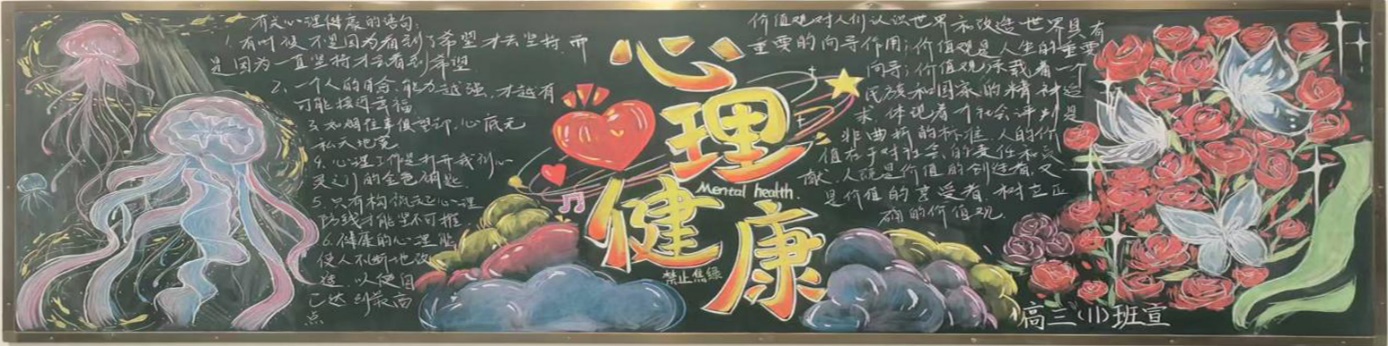 有关心理健康的语句:
1.有时候不是因为看到了希望才去坚持而
是因为一直坚持才会看到希望
2、一个人的自会能力越强.才越有
可能接近幸福
心底无
私天地宽
4.心理工作是打开我们心
灵之门的金色钥匙.
5.只有构筑无心理
防线才能坚不可摧
6.健康的心理能
使人不断地改
造.以使自
己达到最高
点
心理
健康
Mental health.
禁止焦绿
价值观对人们认识世界和改造世界具有
重要的向导作用;价值观是人生的重要
向导;价值观承载着一个
民族和国家的精神追
求.体现着才社会评判是
非曲折的标准.人的价
值在于对社会的责任和贡
献.人既是价值的创造者.又
是价值的享受者.树立正
确的价值观.
高三(11)班宣